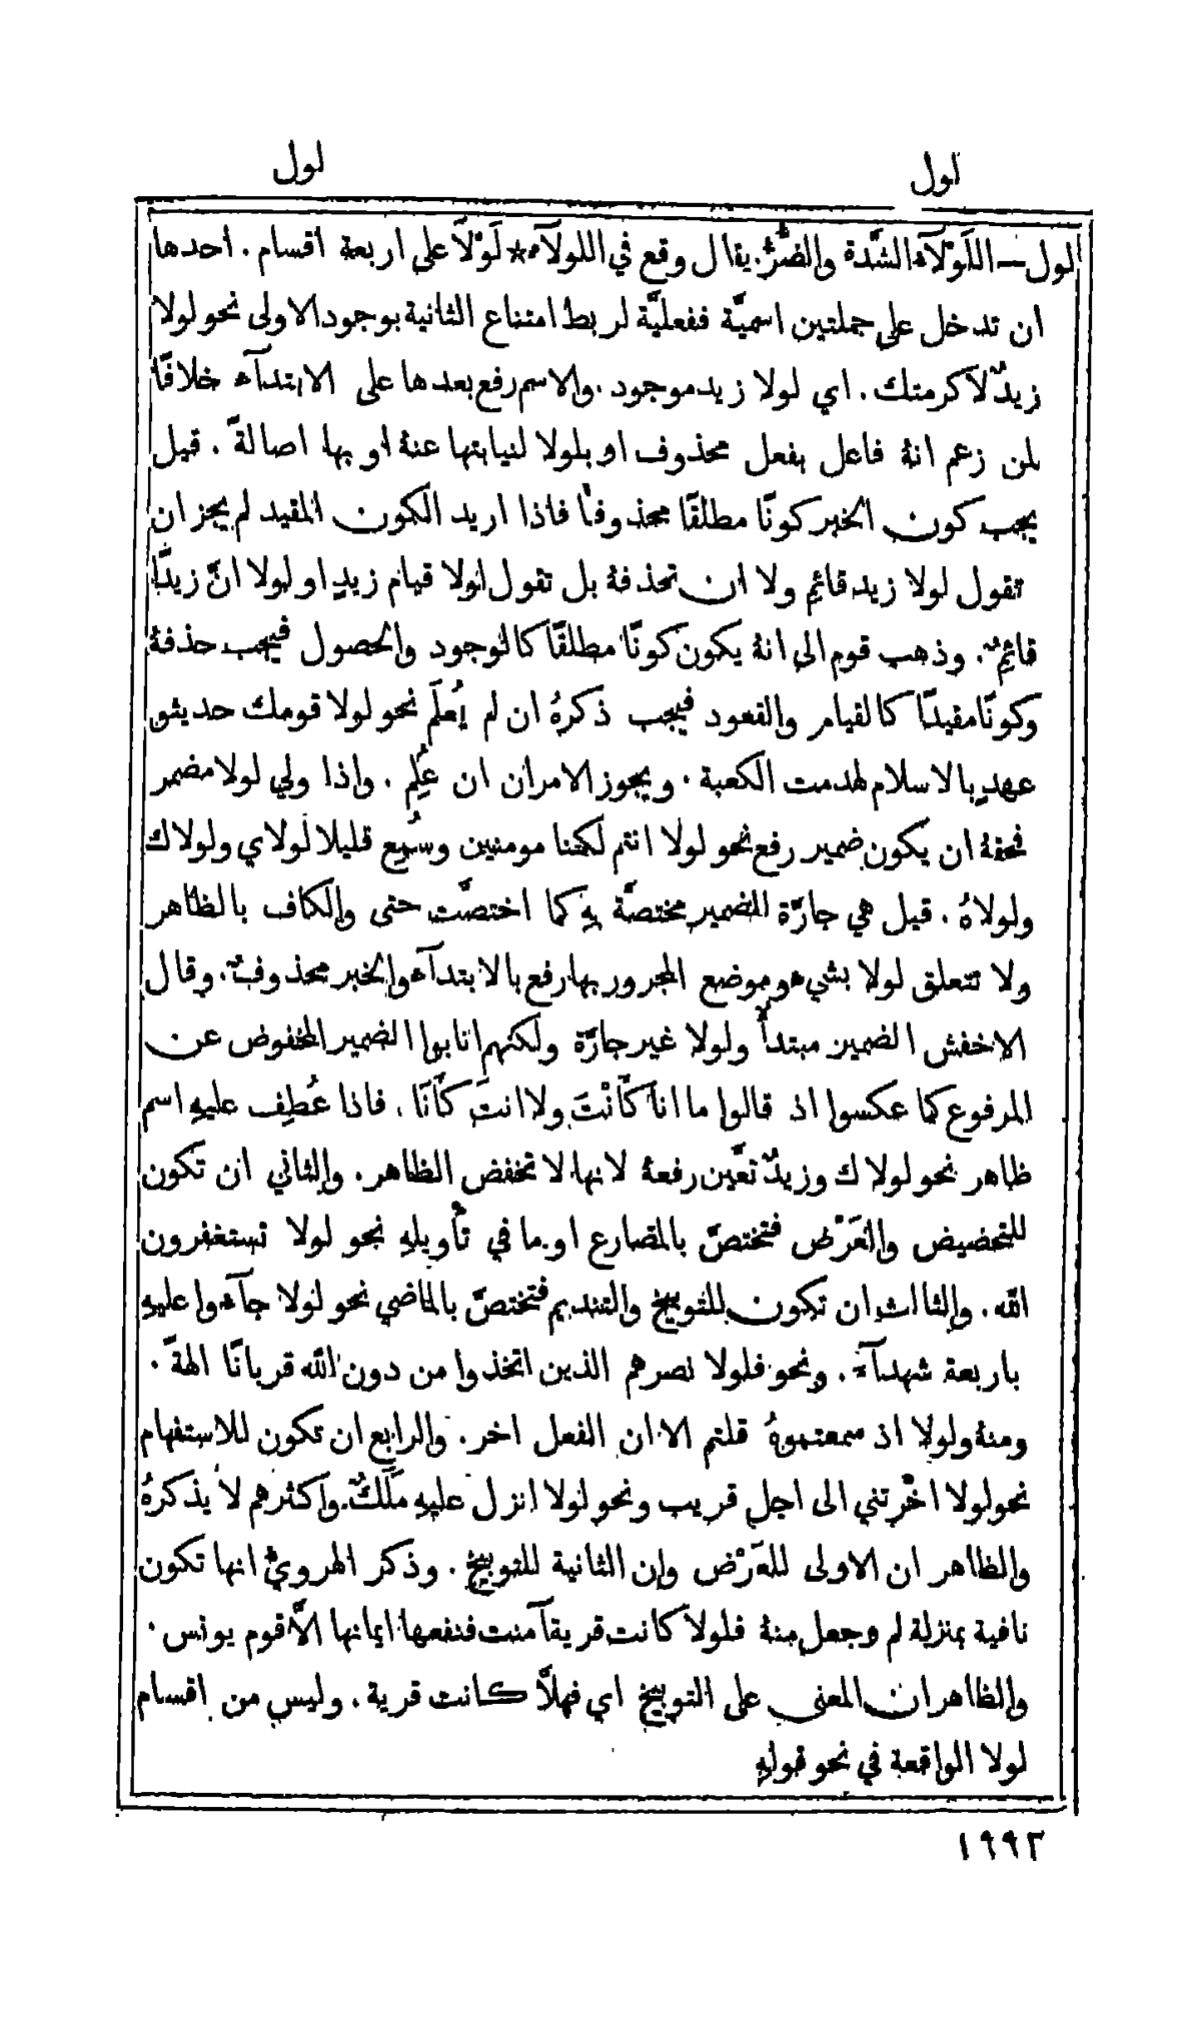 لول
لول
لول — اللَوْلَآء الشّدة والضُّرّ. يقال وقع في اللولآء * لَوْلَا على اربعة اقسام. احدها
ان تدخل على جملتين اسميّة ففعليّة لربط امتناع الثانية بوجود الاولى نحو لولا
زيدٌ لاكرمتك. اي لولا زيد موجود. والاسم رفع بعدها على الابتدآء خلافًا
لمن زعم انهُ فاعل بفعل محذوف او بلولا لنيابتها عنهُ او بها اصالةً. قيل
يجب كون الخبر كونًا مطلقًا محذوفًا فاذا اريد الكون المقيد لم يجز ان
تقول لولا زيد قائم ولا ان تحذفهُ بل تقول لولا قيام زيدٍ او لولا انَّ زيدًا
قائمٌ. وذهب قوم الى انهُ يكون كونًا مطلقًا كالوجود والحصول فيجب حذفهُ
وكونًا مقيدًا كالقيام والقعود فيجب ذكرهُ ان لم يُعلَم نحو لولا قومك حديثو
عهدٍ بالاسلام لهدمت الكعبة. ويجوز الامران ان عُلِم. واذا ولي لولا مضمر
فحقهُ ان يكون ضمير رفع نحو لولا انتم لكنا مومنين وسُمِع قليلا لولاي ولولاك
ولولاهُ. قيل هي جارّة للضمير مختصَّة بهِ كما اختصَّت حتى والكاف بالظاهر
ولا تتعلق لولا بشيء وموضع المجرور بها رفع بالابتدآء والخبر محذوفٌ. وقال
الاخفش الضمير مبتدأٌ ولولا غير جارّة ولكنهم انابوا الضمير المخفوض عن
المرفوع كما عكسوا اذ قالوا ما انا كَأَنْتَ ولا انتَ كَأَنَا. فاذا عُطِف عليهِ اسم
ظاهر نحو لولاك وزيدٌ تعَّين رفعهُ لانها لا تخفض الظاهر. والثاني ان تكون
للتحضيض والعَرْض فتختصّ بالمضارع او ما في تأويلهِ نحو لولا تستغفرون
الله. والثالث ان تكون للتوبيخ والتنديم فتختصّ بالماضي نحو لولا جآءوا عليهِ
باربعة شهدآء. ونحو فلولا نصرهم الذين اتخذوا من دون الله قربانًا الهةً.
ومنهُ ولولا اذ سمعتموهُ قلتم الا ان الفعل اخر. والرابع ان تكون للاستفهام
نحو لولا اخّرتني الى اجلٍ قريب ونحو لولا انزل عليهِ مَلَكٌ. واكثرهم لا يذكرهُ
والظاهر ان الاولى للعَرْض وان الثانية للتوبيخ. وذكر الهرويّ انها تكون
نافية بمنزلة لم وجعل منهُ فلولا كانت قرية آمنت فنفعها ايمانها الَّا قوم يونس.
والظاهر ان المعنى على التوبيخ اي فهلَّا كانت قرية. وليس من اقسام
لولا الواقعة في نحو قولهِ
١٩٩٢